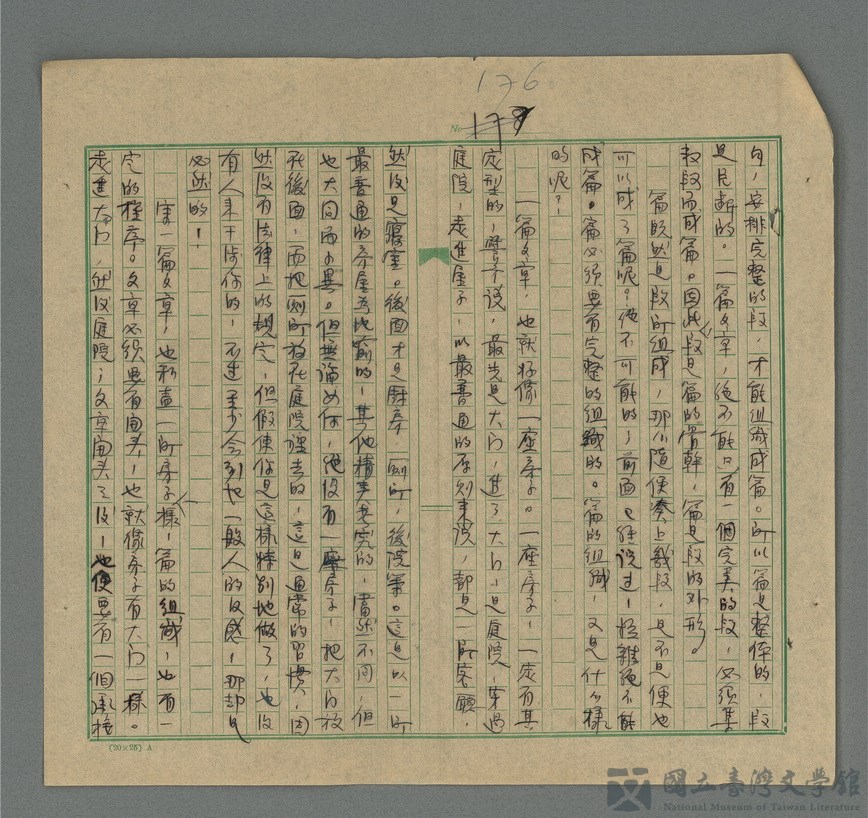 176
No. 178
句，安排完整的段，才能組織成篇。所以篇是整體的，段
是片斷的。一篇文章，絕不能只有一個完美的段，必須集
数段而成篇。因此段是篇的骨幹，篇是段的外形。
篇既然是段所組成，那么随便湊上幾段，是不是便也
可以成了篇呢？絕不可能的，前面已經說过，雜亂不能
成篇。篇必須要有完整的組織的。篇的組織，又是什么樣
的呢？
一篇文章，也就好像一座房子。一座房子，一定有其
定型的，譬于说，最先是大门，進了大门，是庭院，穿過
庭院，走進屋子，以最普通的原则来说，都是一所客廳，
然後是寢室。後面才是厨房，厠所，後院等。這是以一所
最普通的房屋為比喻的，其他精美考究的，當然不同，但
也大同而小異。但無論如何，絕没有一座房子，把大门放
在後面，而把厠所放在庭院裡去的，這是通常的習慣，固
然没有法律上的規定，但假使你是這樣特別地做了，也没
有人来干涉你的，不過至少会引起一般人的反感，那却是
必然的！
寫一篇文章，也和盖一所房子樣，篇的組織，也有一
定的程序。文章必須要有開头，也就像房子有大门一樣。
走進大门，然後庭院，文章開头了後，也便要有一個承接
(20×25) A
國立臺灣文學館
National Museum of Taiwan Literature